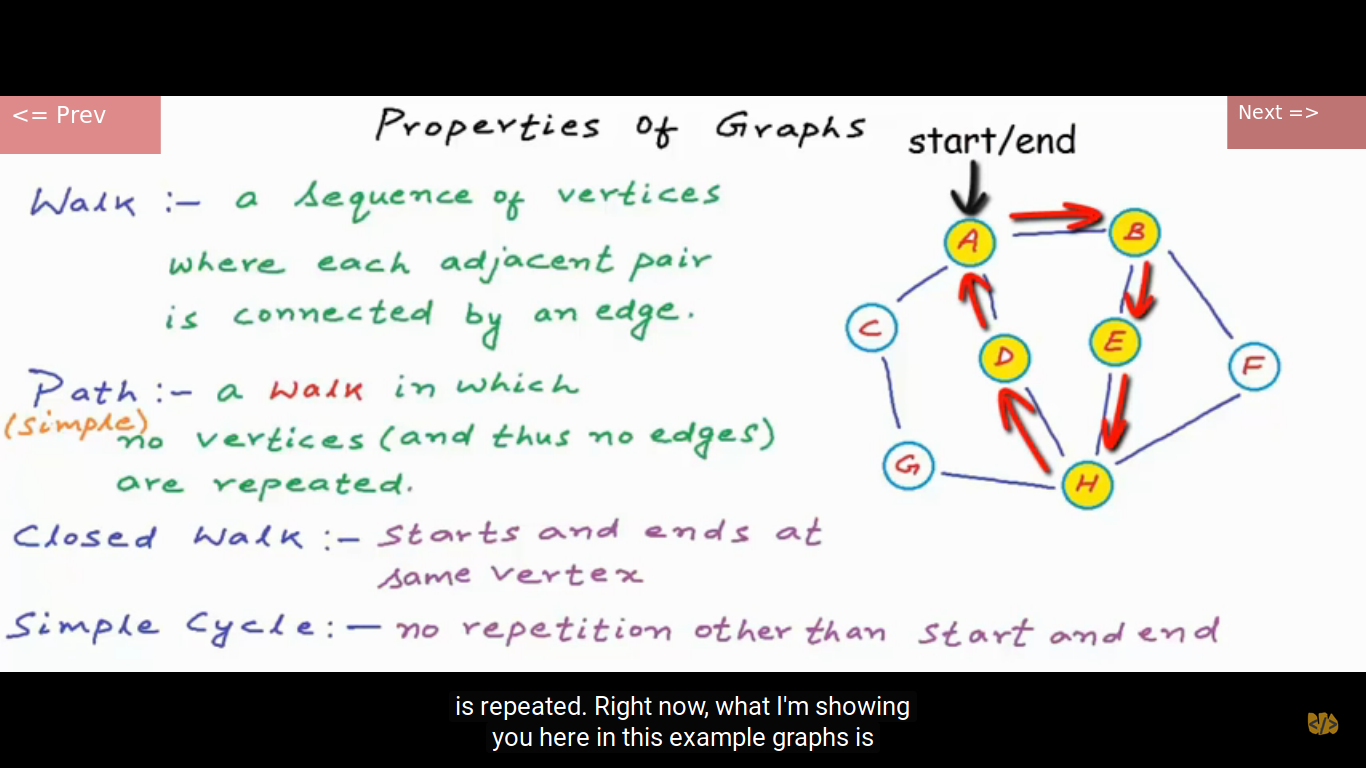 <= Prev
Properties of Graphs
Next =>
start/end
Walk :- a sequence of vertices
where each adjacent pair
is connected by an edge.
Path :- a walk in which
(simple)
no vertices (and thus no edges)
are repeated.
Closed Walk :- Starts and ends at
same vertex
Simple Cycle :- no repetition other than start and end
A
B
C
D
E
F
G
H
is repeated. Right now, what I'm showing
you here in this example graphs is